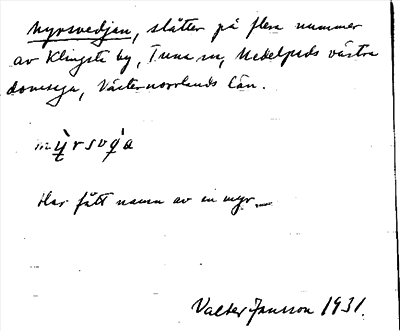 Myrsvedjan, slåtter på flera nummer
av Klingsta by, Tuna sn, Medelpads västra
domsaga, Västernorrlands län.
Har fått namn av en myr.
Valter Jansson 1931.